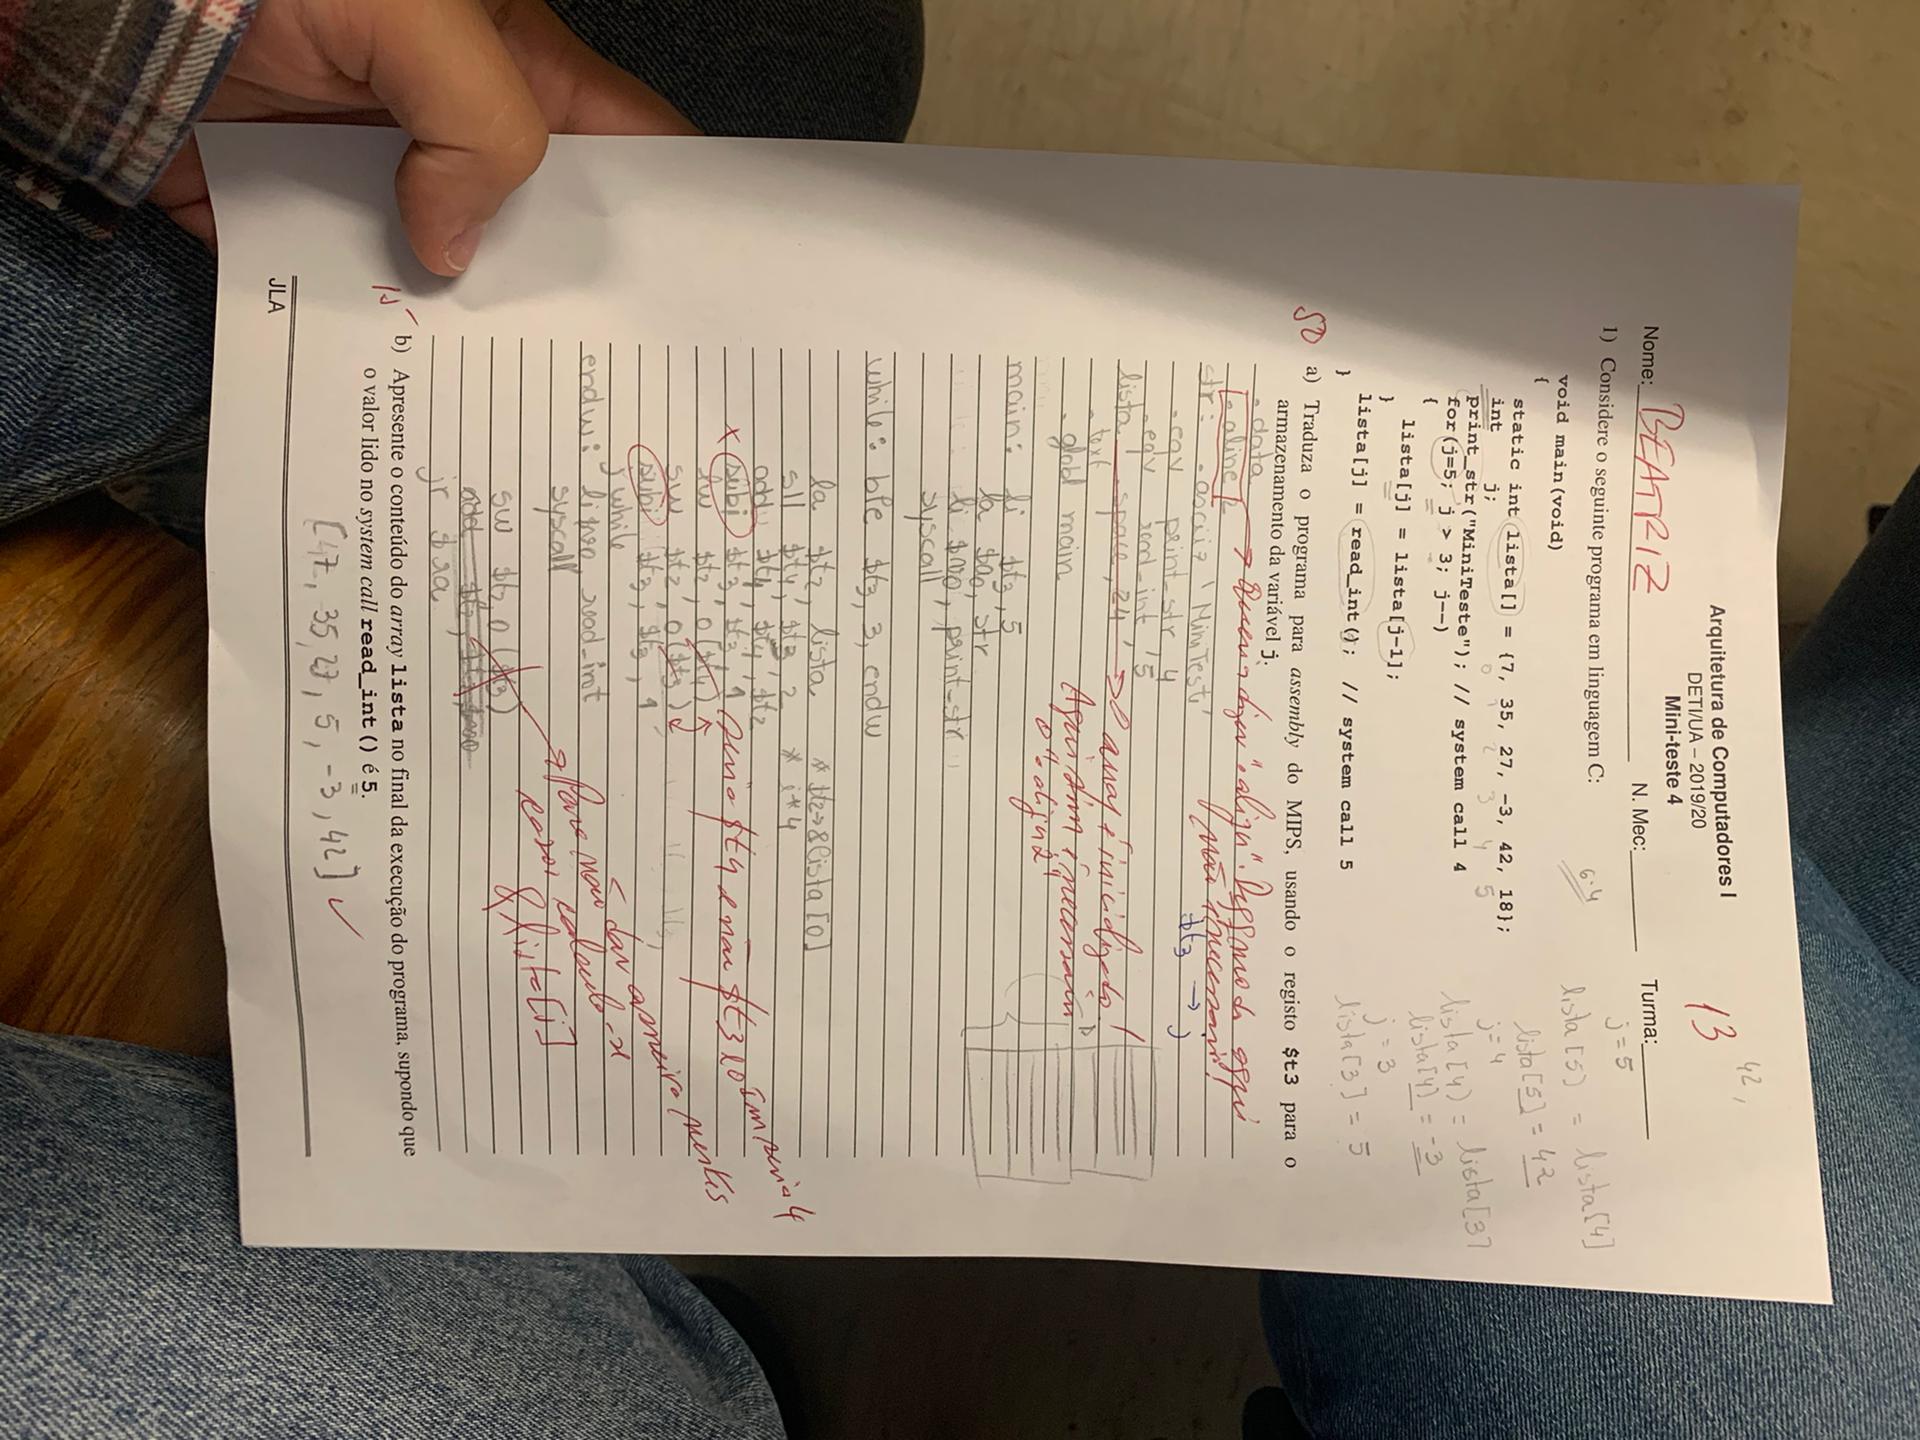 Arquitetura de Computadores I
DETI/UA – 2019/20
Mini-teste 4
13
42,
Nome: BEATRIZ N. Mec: Turma:
1) Considere o seguinte programa em linguagem C:
6.4
void main(void)
{
static int lista[] = {7, 35, 27, -3, 42, 18};
0 1 2 3 4 5
int j;
print_str("MiniTeste"); // system call 4
for(j=5; j > 3; j--)
{
lista[j] = lista[j-1];
}
lista[j] = read_int(); // system call 5
}
j = 5
lista[5] = lista[4]
lista[5] = 42
j = 4
lista[4] = lista[3]
lista[4] = -3
j = 3
lista[3] = 5
50
a) Traduza o programa para assembly do MIPS, usando o registo $t3 para o
armazenamento da variável j.
.data
.aline 2 → Queria dizer ".align". De qq modo aqui
não é necessário!
str: .asciiz 'MiniTest'
$t3 → j
.eqv print_str, 4
.eqv read_int, 5
lista .space, 24 → O array é inicializado!
Aqui sim é necessário
o ".align 2"
.text
.globl main
main: li $t3, 5
la $a0, str
li $v0, print_str
syscall
while: ble $t3, 3, endw
la $t2, lista * $t2→&lista[0]
sll $t4, $t3, 2 * i*4
addu $t4, $t4, $t2
x subi $t3, $t3, 1 seria $t4 e não $t3 e o Imm seria 4
lw $t2, 0($t4)
sw $t2, 0($t3)
subi $t3, $t3, 1
j while
endw: li $v0, read_int
syscall
→ Para não dar asneira nestes
casos, calcula-se
&lista[j]
sw $t2, 0($t3)
add $t2, $t2, $v0
jr $ra
15
b) Apresente o conteúdo do array lista no final da execução do programa, supondo que
o valor lido no system call read_int() é 5.
[47, 35, 27, 5, -3, 42] ✓
JLA